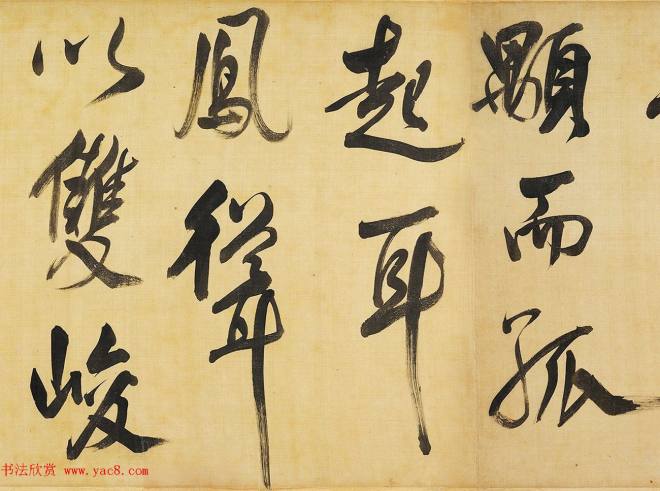 顯而孤
起耳
鳳聳
以雙峻
书法欣赏 www.yac8.com